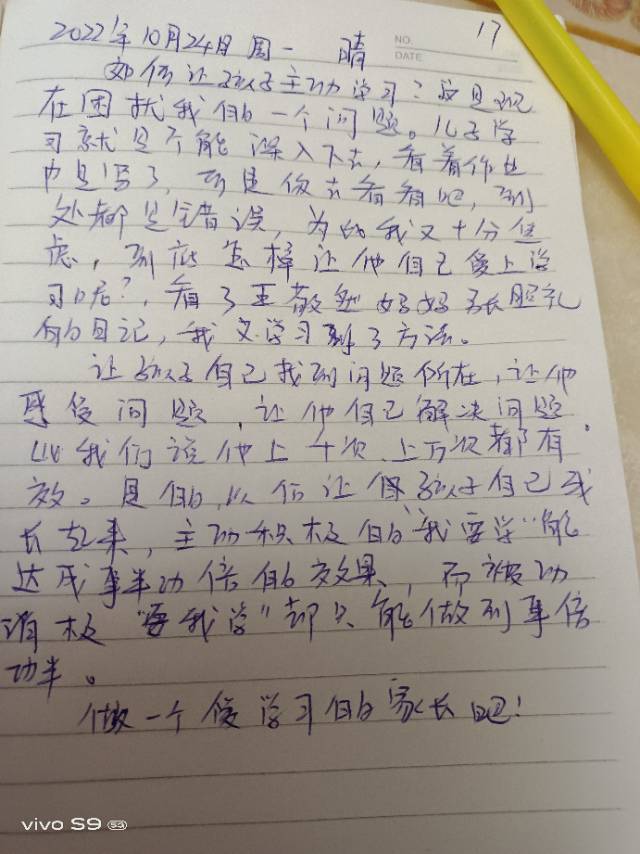 NO.
17
DATE
2022年10月24日 周一 晴
如何让孩子主动学习？这是现
在困扰我们的一个问题。儿子学
习就是不能深入下去，看着作业
也是写了，可是你去看看吧，到
处都是错误，为此我又十分焦
虑，到底怎样让他自己爱上学
习呢？，看了王敬然妈妈张胜礼
的日记，我又学习到了方法。
让孩子自己找到问题所在，让他
感受问题，让他自己解决问题
比我们说他上千次上万次都有
效。是的，以何让孩子自己成
长起来，主动积极的"我要学"能
达成事半功倍的效果，而被动
消极"要我学"却只能做到事倍
功半。
做一个爱学习的家长吧！
vivo S9